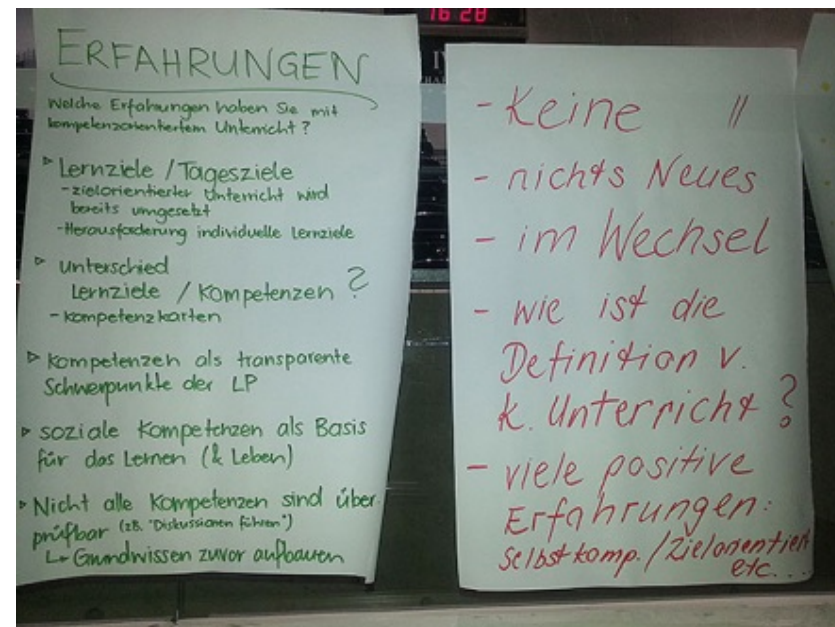 16 28
ERFAHRUNGEN
Welche Erfahrungen haben Sie mit
kompetenzorientiertem Unterricht?
▹ Lernziele / Tagesziele
- zielorientierter Unterricht wird
bereits umgesetzt
- Herausforderung individuelle Lernziele
▹ Unterschied
Lernziele / Kompetenzen ?
- Kompetenzkarten
▹ Kompetenzen als transparente
Schwerpunkte der LP
▹ soziale Kompetenzen als Basis
für das Lernen (& Leben)
▹ Nicht alle Kompetenzen sind über-
prüfbar (zB. "Diskussionen führen")
↳ Grundwissen zuvor aufbauen
- Keine "
- nichts Neues
- im Wechsel
- wie ist die
Definition v.
k. Unterricht ?
- viele positive
Erfahrungen:
Selbstkomp. / Zielorientiert
etc....